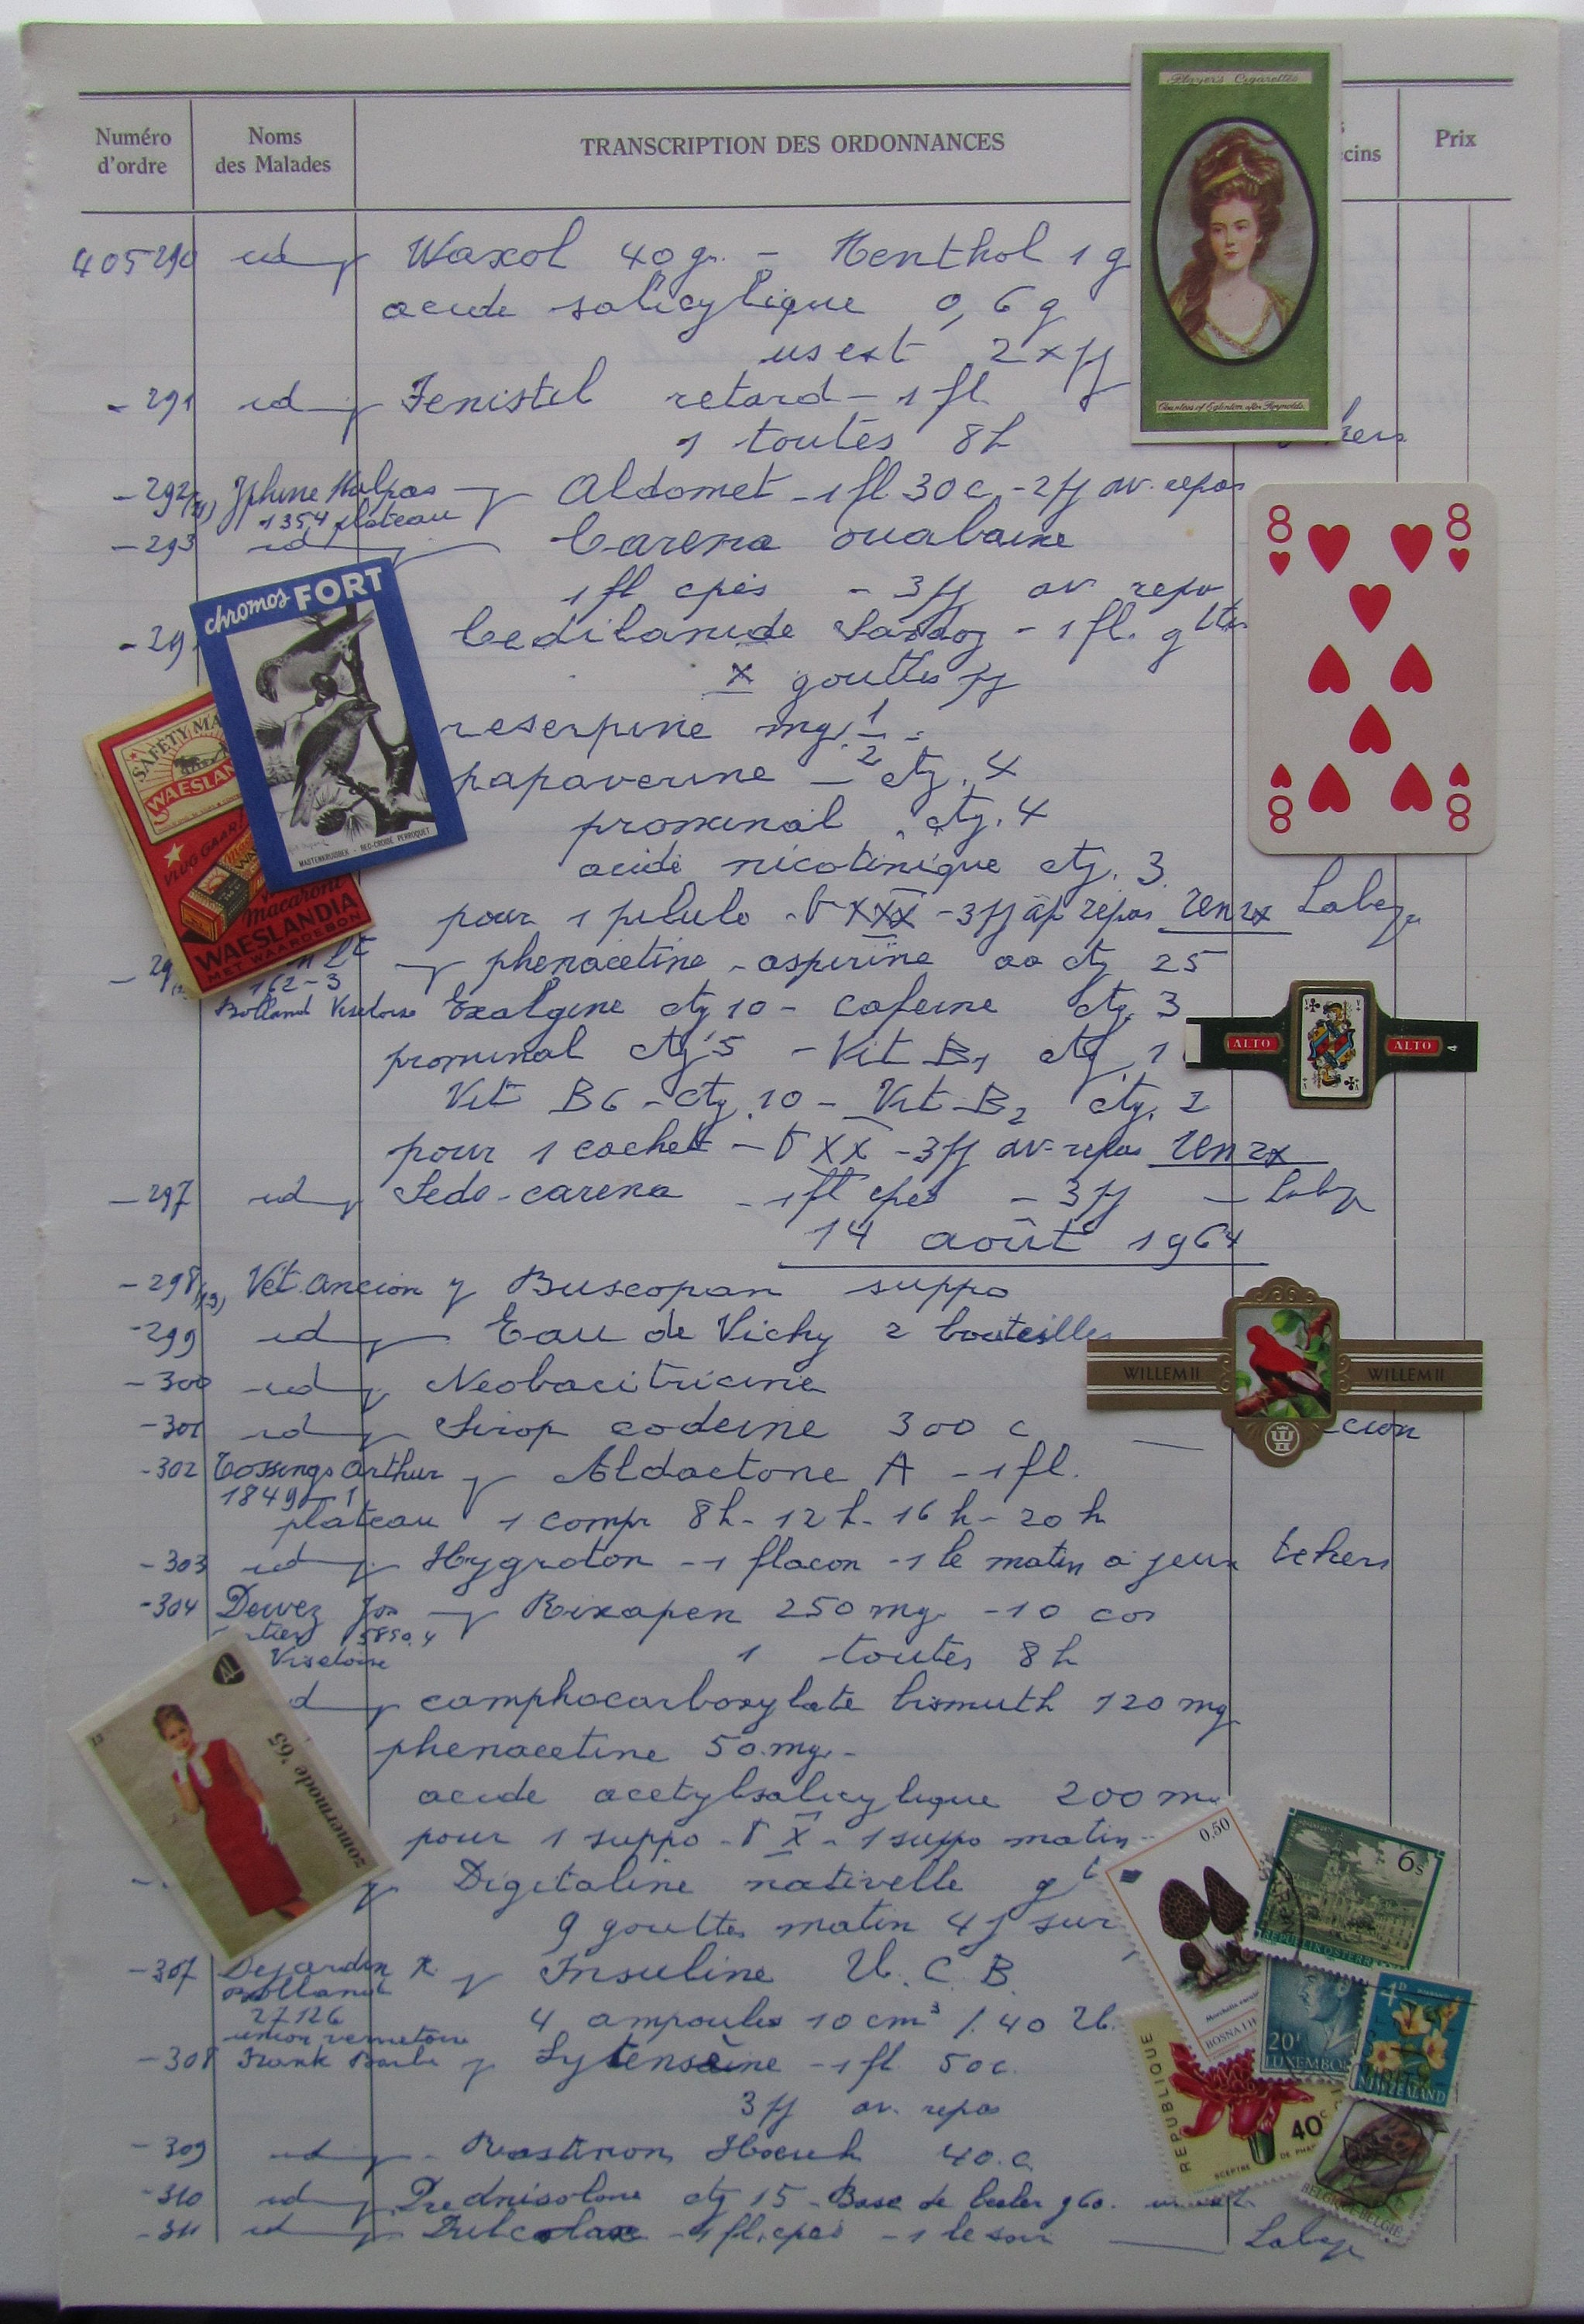 Numéro d'ordre
Noms des Malades
TRANSCRIPTION DES ORDONNANCES
cins
Prix
Player's Cigarettes
Countess of Eglinton after Reynolds.
405290 id Waxol 40 gr. - Menthol 1 g
acide salicylique 0,6 g
us ext 2 x jj
- 291 id Fenistil retard - 1 fl
1 toutes 8h
kers
- 292 Malpas Aldomet - 1 fl 30 c - 2 jj av. repas
1354 plateau
- 293 id Carena ouabaine
1 fl cpés - 3 jj av repas
- 29 Cedilanide Sandoz - 1 fl. gttes
X gouttes jj
reserpine mgr. 1/2 -
papaverine - ctg. 4
prominal ctg. 4
acide nicotinique ctg. 3
pour 1 pilule - XXX - 3 jj ap repas ren 2x Labeye
8
8
8
8
chromos FORT
MASTENKRUISBEK - BEC-CROISE PERROQUET
SAFETY MA
WAESLAN
VLUG GAAR!
Macaroni
WAESLANDIA
MET WAARDEBON
- 29 phenacetine - aspirine aa ctg 25
162-3
Bolland Viseloise Exalgine ctg 10 - cafeine ctg. 3
prominal ctg 5 - Vit B1 ctg 1
Vit B6 - ctg 10 - Vit B2 ctg. 2
pour 1 cachet - XX - 3 jj av-repas ren 2x
ALTO
ALTO
4
- 297 id Sedo-carena - 1 fl cpés - 3 jj - Labeye
14 août 1964
- 298 Vét. Ancion Buscopan suppo
- 299 id Eau de Vichy 2 bouteilles
- 300 id Neobacitricine
- 301 id Sirop codeine 300 c cion
WILLEM II
WILLEM II
- 302 Cossings Arthur Aldactone A - 1 fl.
1849 - 1
plateau 1 compr 8h - 12h - 16h - 20h
- 303 id Hygroton - 1 flacon - 1 le matin a jeun
- 304 Dewez Jos Rixapen 250 mg - 10 co
5850.4
Viseloise 1 toutes 8h
d camphocarboxylate bismuth 120 mg
phenacetine 50 mg -
acide acetylsalicylique 200 m
pour 1 suppo - X - 1 suppo matin
Digitaline nativelle g
9 gouttes matin 4 j sur
13
zomermode '65
- 307 Dejardin Insuline U.C.B.
Bolland
27126 4 ampoules 10 cm³ / 40 U.
union verviétoise
- 308 Frank Lytensène - 1 fl 50 c.
3 jj av. repas
- 309 id Rastinon Hoechst 40 c
- 310 id Prednisolone ctg 15 - Base de beeler g 60.
- 311 id Dulcolax - 1 fl. cpés - 1 le soir Labeye
0,50
BOSNA I H
6s
REPUBLIK ÖSTERR
20F
LUXEMBO
4D
NEW ZEALAND
REPUBLIQUE
40c
SCEPTRE DE PHAR
BELGIQUE-BELGIË